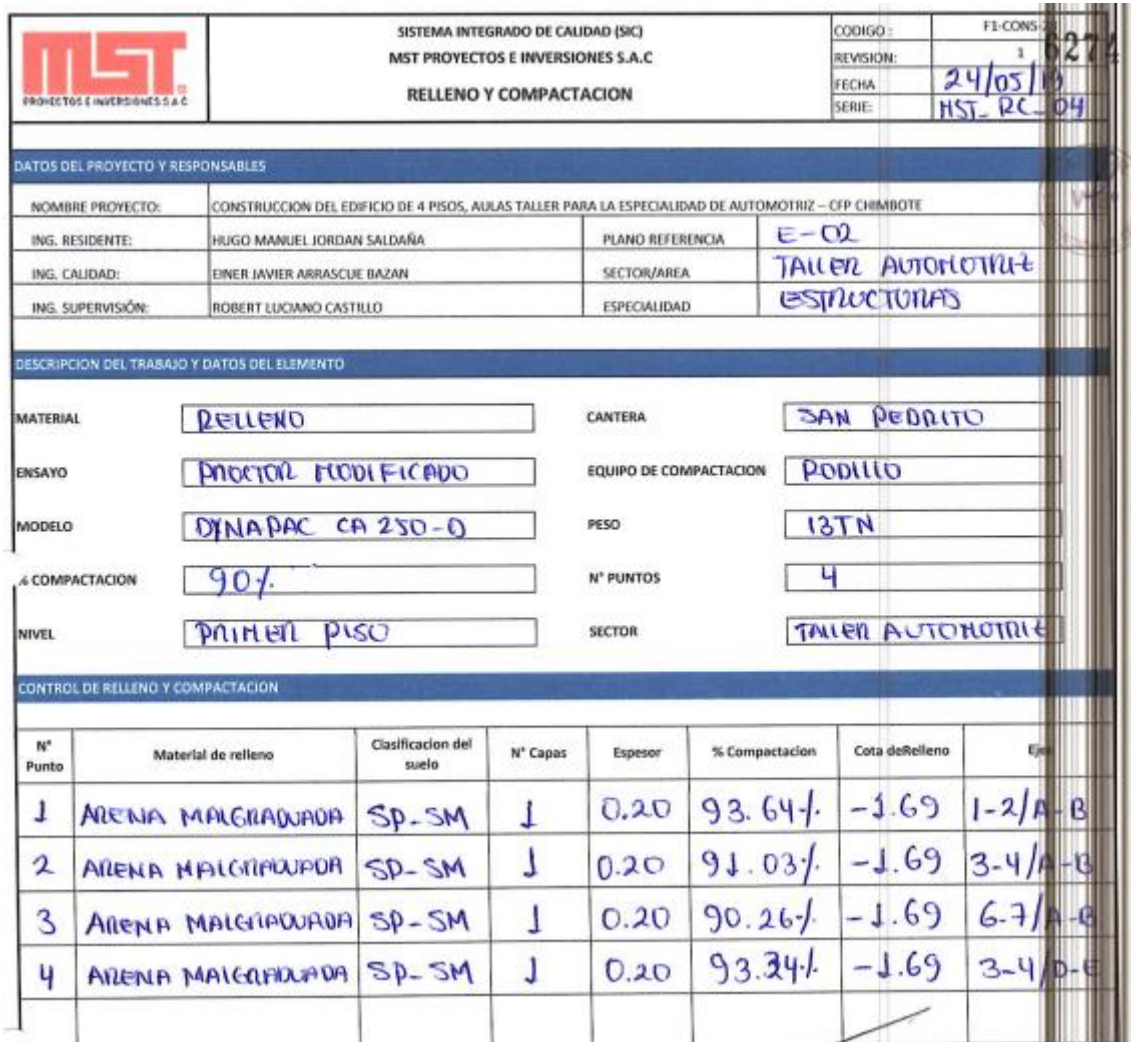 MST
PROYECTOS E INVERSIONES S.A.C
SISTEMA INTEGRADO DE CALIDAD (SIC)
MST PROYECTOS E INVERSIONES S.A.C
RELLENO Y COMPACTACION
CODIGO : F1-CONS-
REVISION: 1
6274
FECHA 24/05/19
SERIE: MST_RC_04
DATOS DEL PROYECTO Y RESPONSABLES
NOMBRE PROYECTO: CONSTRUCCION DEL EDIFICIO DE 4 PISOS, AULAS TALLER PARA LA ESPECIALIDAD DE AUTOMOTRIZ – CFP CHIMBOTE
ING. RESIDENTE: HUGO MANUEL JORDAN SALDAÑA PLANO REFERENCIA E-02
ING. CALIDAD: EINER JAVIER ARRASCUE BAZAN SECTOR/AREA TALLER AUTOMOTRIZ
ING. SUPERVISIÓN: ROBERT LUCIANO CASTILLO ESPECIALIDAD ESTRUCTURAS
DESCRIPCION DEL TRABAJO Y DATOS DEL ELEMENTO
MATERIAL RELLENO CANTERA SAN PEDRITO
ENSAYO PROCTOR MODIFICADO EQUIPO DE COMPACTACION RODILLO
MODELO DYNAPAC CA 250-D PESO 13TN
% COMPACTACION 90% N° PUNTOS 4
NIVEL PRIMER PISO SECTOR TALLER AUTOMOTRIZ
CONTROL DE RELLENO Y COMPACTACION
N° Punto Material de relleno Clasificacion del suelo N° Capas Espesor % Compactacion Cota deRelleno Ejes
1 ARENA MALGRADUADA SP-SM 1 0.20 93.64% -1.69 1-2/A-B
2 ARENA MALGRADUADA SP-SM 1 0.20 91.03% -1.69 3-4/A-B
3 ARENA MALGRADUADA SP-SM 1 0.20 90.26% -1.69 6-7/A-B
4 ARENA MALGRADUADA SP-SM 1 0.20 93.34% -1.69 3-4/D-E